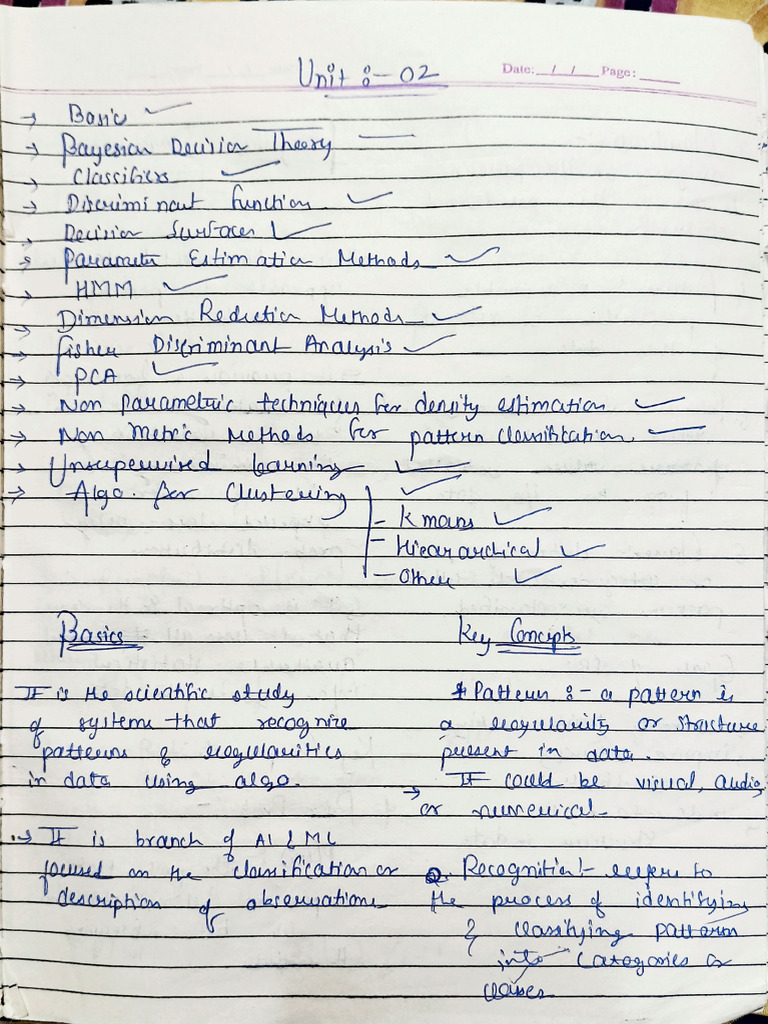 Unit :- 02
Date: __/__/__ Page: ____
→ Basic ✓
→ Bayesian Decision Theory —
→ Classifiers ✓
→ Discriminant function ✓
→ Decision Surfaces ✓
→ Parameter Estimation Methods ✓
→ HMM ✓
→ Dimension Reduction Methods ✓
→ Fisher Discriminant Analysis ✓
→ PCA ✓
→ Non parametric techniques for density estimation ✓
→ Non Metric Methods for pattern classification. ✓
→ Unsupervised learning ✓
→ Algo. for Clustering ✓
- Kmeans ✓
- Hierarchical ✓
- Other ✓
Basics
It is the scientific study
of systems that recognize
patterns & regularities
in data using algo.
→ It is branch of AI & ML
focused on the classification or
description of observations
Key Concepts
1 Pattern :- a pattern is
a regularity or structure
present in data.
→ It could be visual, audio,
or numerical.
2. Recognition :- refers to
the process of identifying
& classifying pattern
into categories or
classes